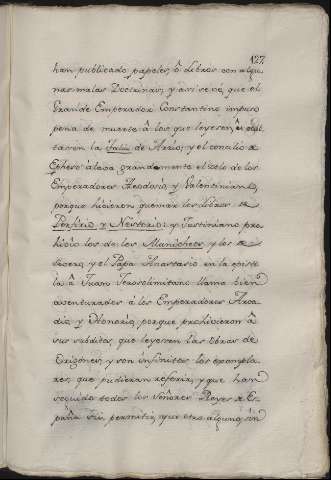 127
han publicado papeles, ò Libros con algu-
nas malas Doctrinas; y asi se vé, que el
Grande Emperador Constantino impuso
pena de muerte â los que leyesen, ô ocul-
tassen la Talia de Arrio, y el concilio de
Epheso alaba grandemente el zelo de los
Emperadores Theodosio, y Valentiniano
porque hicieron quemar los libros de
Porfirio y Nestorio: y Justiniano pro-
hivio los de los Manicheos y los de
Severo; y el Papa Anastasio en la episto-
la â Juan Jerosolimitano llama bien
aventurados â los Emperadores Arca-
dio, y Honorio, porque prohivieron â
sus subditos, que leyessen las obras de
Origenes, y son infinitos los exempla-
res, que pudieran referirse, y que han
seguido todos los Señores Reyes de Es-
paña sin permitir, que otro alguno, sin